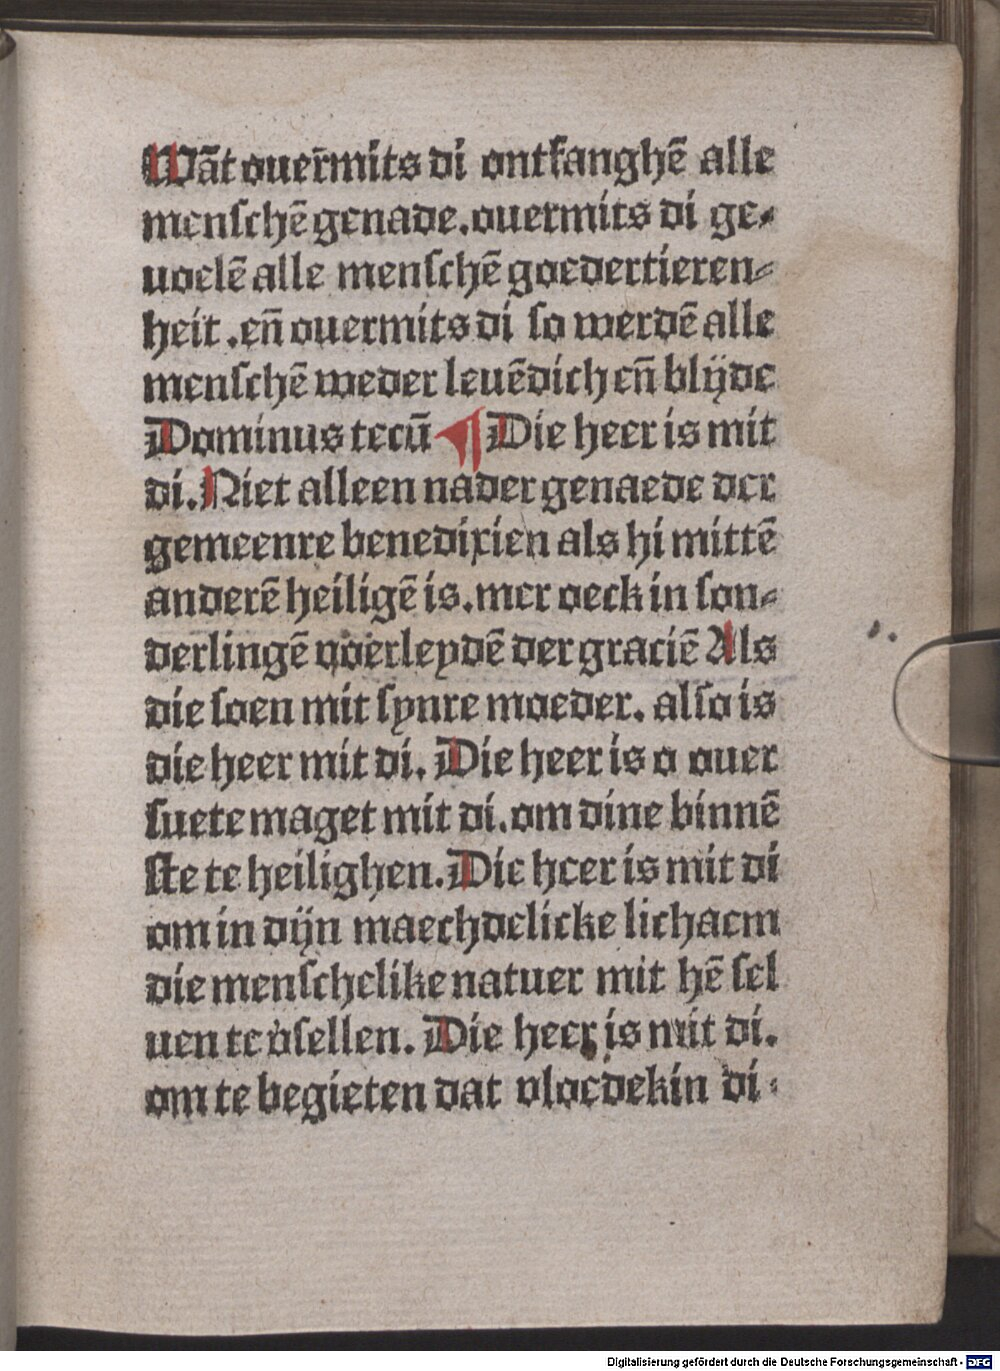 Wāt ouer̄mits di ontfanghē alle
menſchē genade. ouermits di ge⸗
uoelē alle menſchē goedertieren⸗
heit. en̄ ouermits di ſo werdē alle
menſchē weder leuēdich en̄ blijde
Dominus tecū ¶ Die heer is mit
di. Niet alleen na der genaede der
gemeenre benedixien als hi mittē
anderē heiligē is. mer oeck in ſon⸗
derlingē voerleydē der graciē Als
die ſoen mit ſynre moeder. alſo is
die heer mit di. Die heer is o ouer
ſuete maget mit di. om dine binnē
ſte te heilighen. Die heer is mit di
om in dijn maechdelicke lichaem
die menſchelike natuer mit hē ſel
uen te v̓ſellen. Die heer is mit di.
om te begieten dat vloedekin di⸗
Digitalisierung gefördert durch die Deutsche Forschungsgemeinschaft - DFG